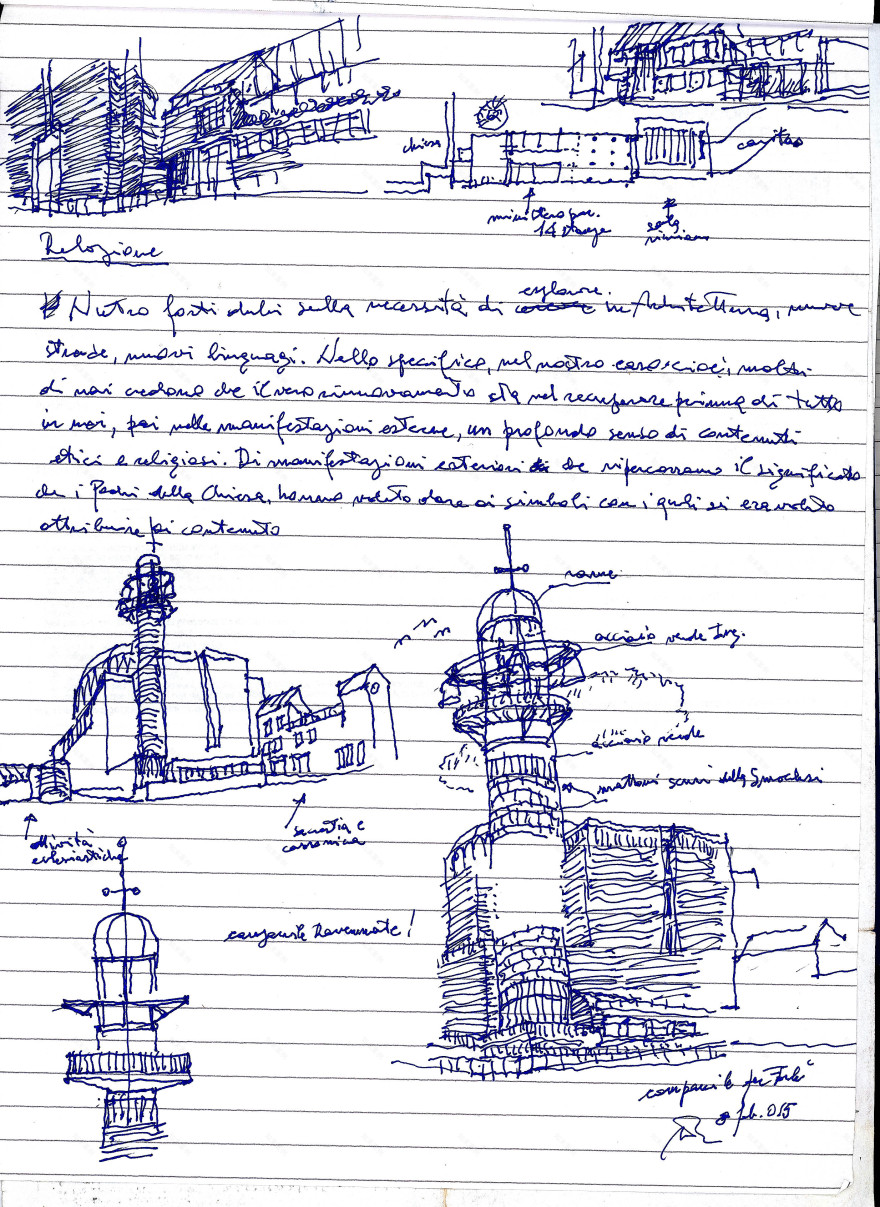 chiesa
caritas
14 stanze
sala
riunioni
Relazione
Nutro forti dubbi sulla necessità di esplorare in Architettura, nuove
strade, nuovi linguaggi. Nello specifico, nel nostro caso cioè, molti
di noi credono che il vero rinnovamento stia nel recuperare prima di tutto
in noi, poi nelle manifestazioni esterne, un profondo senso di contenuti
etici e religiosi. Di manifestazioni esteriori che ripercorrano il significato
che i Padri della Chiesa, hanno voluto dare ai simboli con i quali si era voluto
attribuire poi contenuto
rame
acciaio verde Ing.
acciaio verde
mattoni scuri della
attività
ecclesiastiche
sacrestia e
canonica
campanile Ravennate!
campanile per Forlì
8 feb. 015